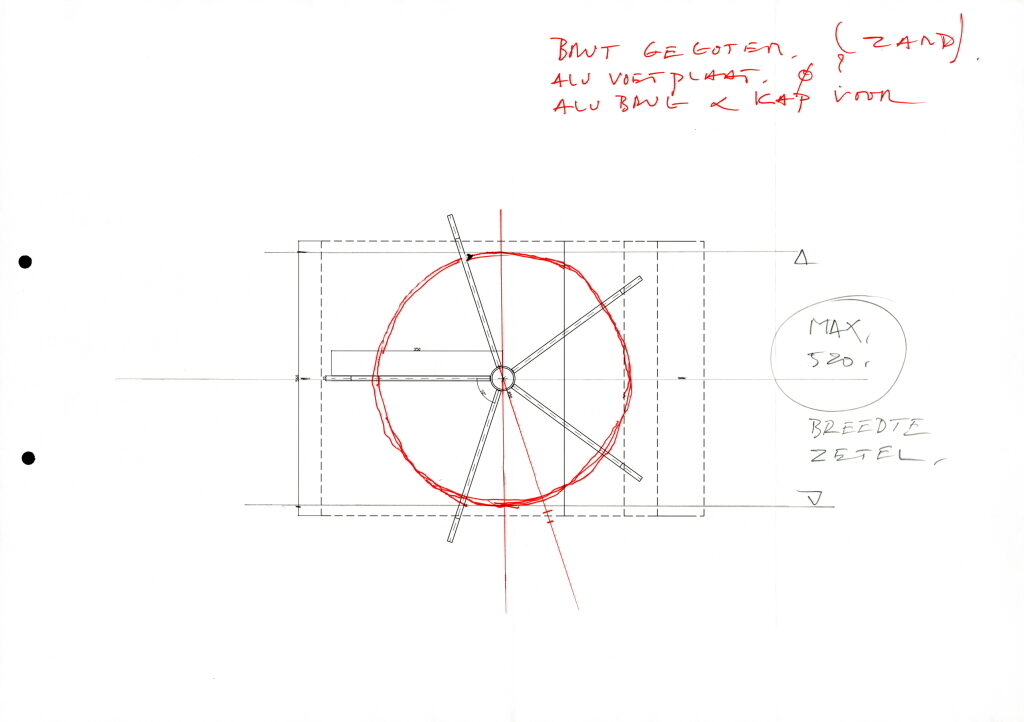 BRUT GEGOTEN. (ZAND).
ALU VOETPLAAT. Ø ?
ALU & KAP VOOR
MAX.
520.
BREEDTE
ZETEL.